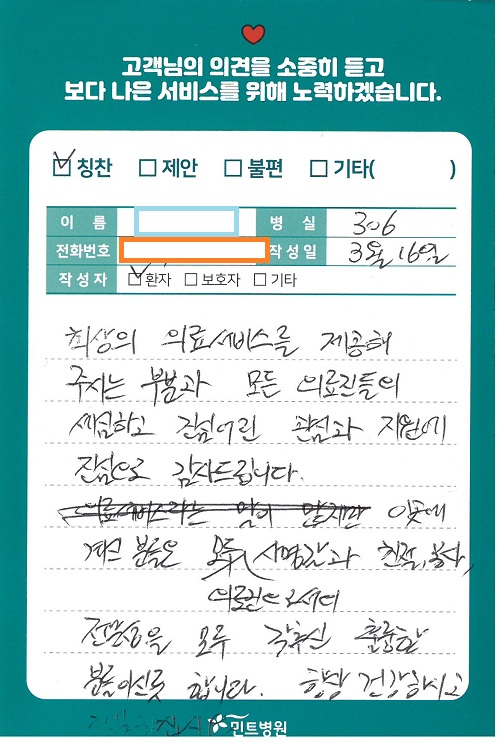 고객님의 의견을 소중히 듣고
보다 나은 서비스를 위해 노력하겠습니다.
칭찬 제안 불편 기타( )
이 름 병 실 306
전화번호 작성일 3월 16일
작성자 환자 보호자 기타
최상의 의료서비스를 제공해
주시는 부분과 모든 의료진들의
세심하고 진심어린 관심과 지원에
진심으로 감사드립니다.
의료서비스라는 말이 맞지만 이곳에
계신 분들은 모두 사명감과 친절, 봉사,
의료인으로서의
전문성을 모두 갖추신 훌륭한
분들이신듯 합니다. 항상 건강하시고
민트병원